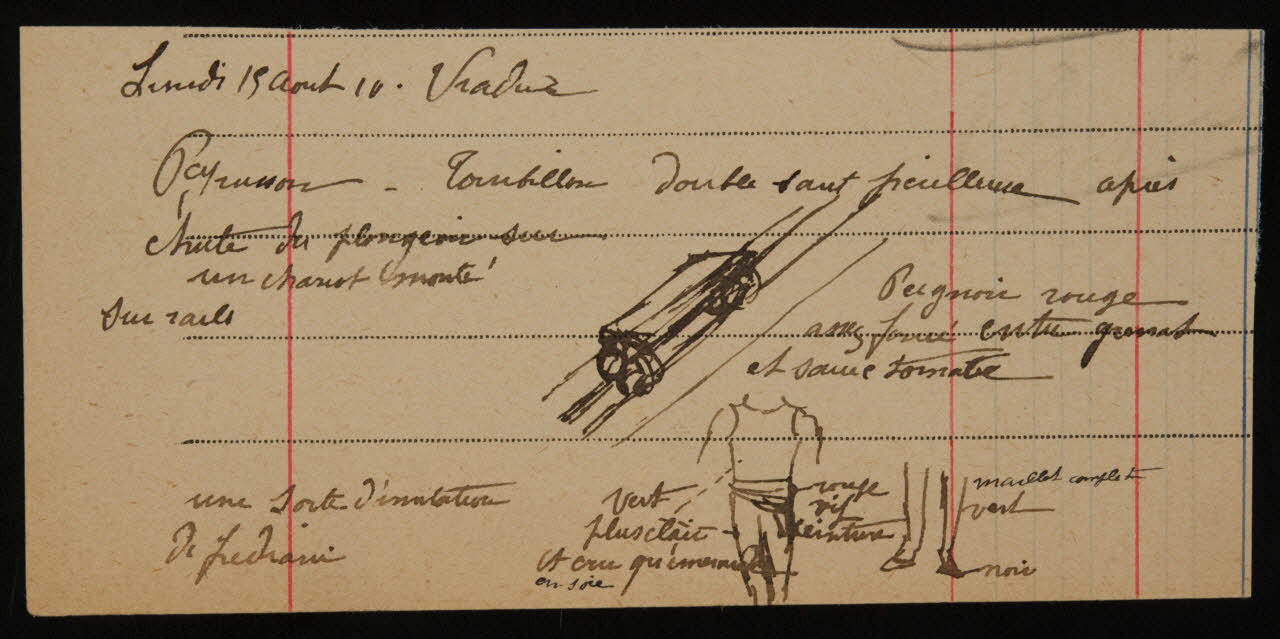 Lundi 15 Aout 10.
Peyrusson - Tourbillon double saut périlleux après
chute du plongeoir sur
un chariot monté
sur rails
Peignoir rouge
assez foncé entre grenat
et sauce tomate
une sorte d'imitation
de
vert
plus clair
et cru qu'émeraude
en soie
rouge
vif
ceinture
maillot complet
vert
noir